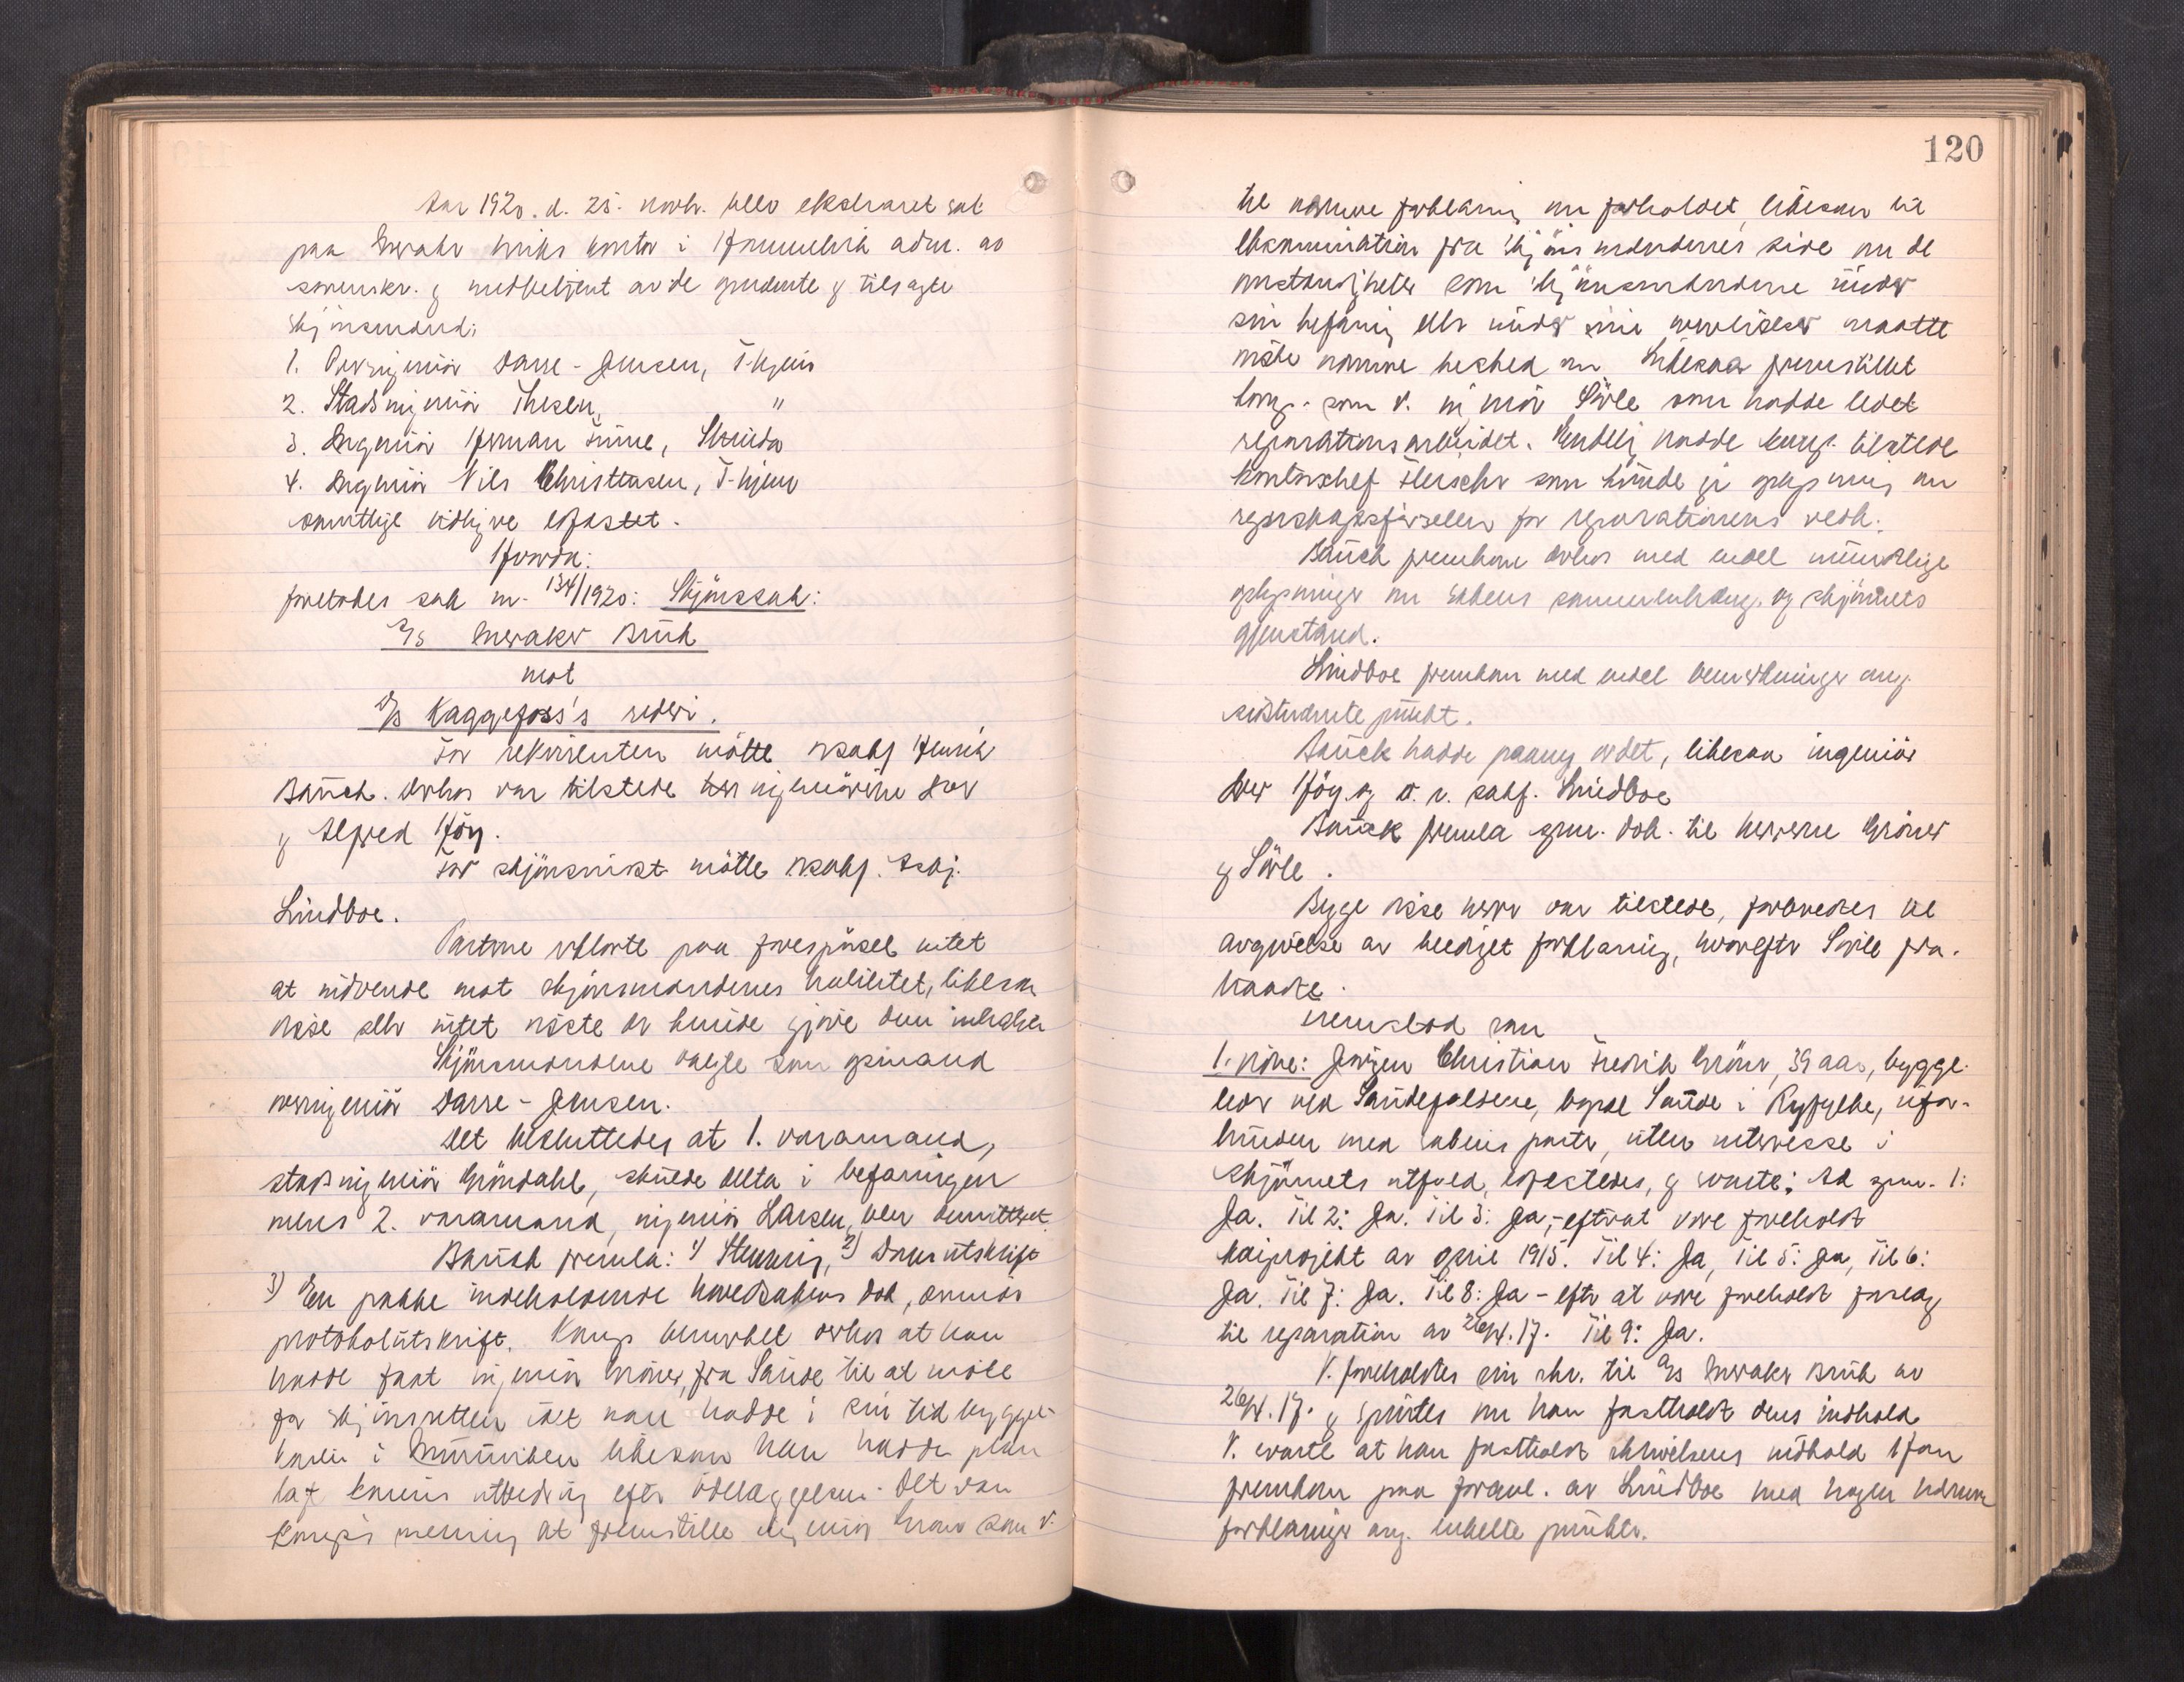 Aar 1920. d. 25. novbr. blev ekstraret sat
paa Meraker bruks kontor i Hommelvik adm. av
sorenskr. og medbetjent av de opnævnte og tilsagte
skjønsmænd:
1. Overingeniør Darre-Jensen, T-hjem
2. Stadsingeniør Thesen, "
3. Ingeniør Herman Finne, Strinda
4. Ingeniør Nils Christensen, T-hjem
samtlige tidligere edfæstet.
Hvorda:
foretokes sak nr. 134/1920: Skjønssak:
A/S Meraker Bruk
mot
D/S Kaggefoss's rederi.
For rekvirenten møtte o.r.sakf. Henrik
Bauck. Derhos var tilstede ingeniørerne Iver
og Alfred Høy.
For skjønsmotp. møtte o.r.sakf. Asbj.
Lindboe.
Parterne erklærte paa forespørsel intet
at indvende mot skjønsmændenes habilitet, likesom
disse selv intet visste der kunde gjøre dem inhabile
Skjønsmændene valgte som opmand
overingeniør Darre-Jensen.
Det besluttedes at 1. varamand,
stadsingeniør Grøndahl, skulde delta i befaringen
mens 2. varamand, ingeniør Larsen, blev demittert.
Bauck fremla: 1) Stevning, 2) Domsutskrift
3) En pakke indeholdende hovedsakens dok, samt
protokolutskrift. Komp. bemerket derhos at han
hadde faat ingeniør Grøner, fra Saude til at møte
for skjønsretten idet han hadde i sin tid bygget
kaien i Muruviken likesom han hadde plan-
lagt kaiens utbedring efter ødelæggelsen. Det var
komp's mening at fremstille ingeniør Grøner som v.
120
til nærmere forklaring om forholdet, likesom til
eksamination fra skjønsmændenes side om de
omstændigheter som skjønsmændene under
sin befaring eller under sine overveielser maatte
ønske nærmere besked om. Likesaa fremstillet
komp. som v. ingeniør Sørle som hadde ledet
reparationsarbeidet. Endelig hadde komp. tilstede
kontorchef Fleischer som kunde gi oplysning om
regnskapsførselen for reparationens vedk.
Bauck fremkom derhos med endel mundtlige
oplysninger om sakens sammenheng og skjønnets
gjenstand.
Lindboe fremkom med endel bemerkninger ang.
sistnævnte punkt.
Bauck hadde paany ordet, likesaa ingeniør
Iver Høy. og o. r. sakf. Lindboe
Bauck fremla spm. dok. til herrerne Grøner
og Sørle.
Begge disse herrer var tilstede, forberedtes til
avgivelse av beediget forklaring, hvorefter Sørle fra-
traadte.
Fremstod som
1. vidne: Jørgen Christian Fredrik Grøner, 39 aar, bygge-
leder ved Saudefaldene, bopæl Saude i Ryfylke, ufor-
bunden med sakens parter, uten interesse i
skjønnets utfald, edfæstedes, og svarte: Ad spm. 1:
Ja. Til 2: Ja. Til 3: Ja,- efterat være foreholdt
kaiprojekt av april 1915. Til 4: Ja, Til 5: Ja, Til 6:
Ja. Til 7: Ja. Til 8: Ja - efter at være foreholdt forslag
til reparation av 26/4.17. Til 9: Ja.
V. foreholdtes sin skr. til A/S Meraker Bruk av
26/4.17. og spurtes om han fastholdt dens indhold
V. svarte at han fastholdt skrivelsens indhold Han
fremkom paa foranl. av Lindboe med nogen nærmere
forklaringer ang. enkelte punkter.